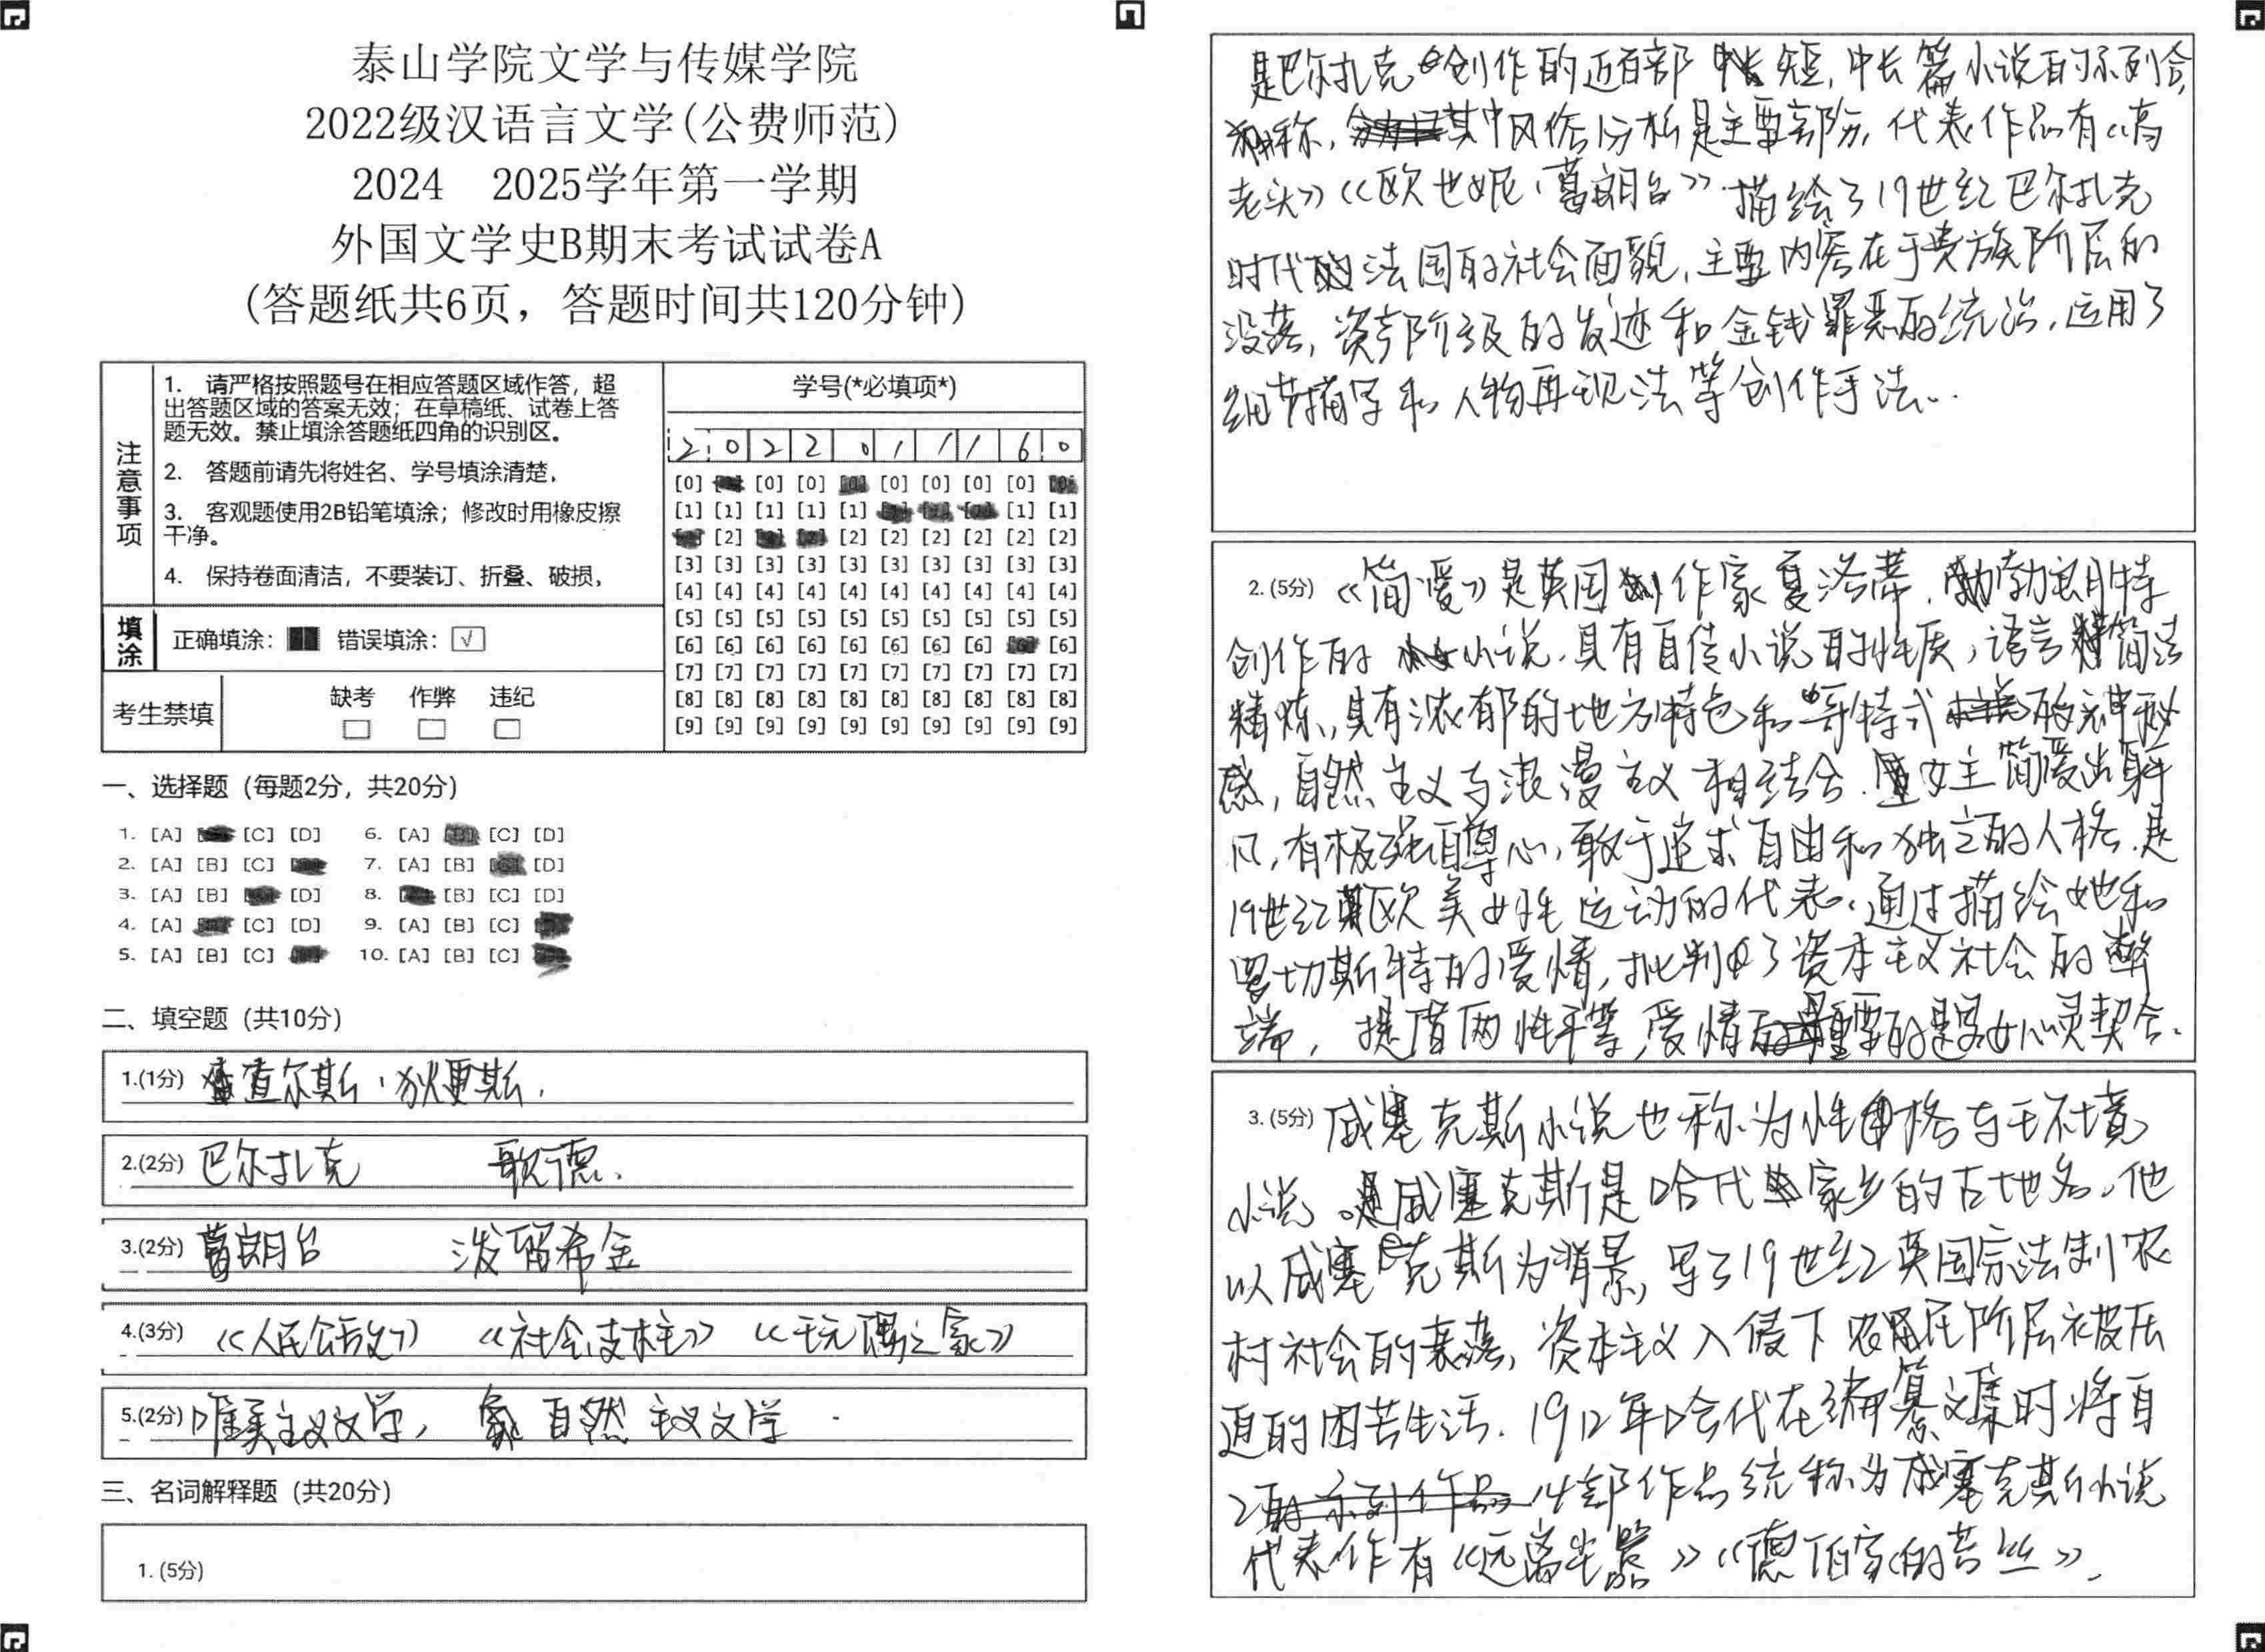 泰山学院文学与传媒学院
2022级汉语言文学(公费师范)
2024 2025学年第一学期
外国文学史B期末考试试卷A
(答题纸共6页，答题时间共120分钟)
注意事项
1. 请严格按照题号在相应答题区域作答，超
出答题区域的答案无效；在草稿纸、试卷上答
题无效。禁止填涂答题纸四角的识别区。
2. 答题前请先将姓名、学号填涂清楚，
3. 客观题使用2B铅笔填涂；修改时用橡皮擦
干净。
4. 保持卷面清洁，不要装订、折叠、破损，
填涂
正确填涂： 错误填涂：√
考生禁填
缺考 作弊 违纪
学号(*必填项*)
2 0 2 2 0 1 1 1 6 0
[0] [0] [0] [0] [0] [0] [0]
[1] [1] [1] [1] [1] [1] [1]
[2] [2] [2] [2] [2] [2] [2]
[3] [3] [3] [3] [3] [3] [3] [3] [3] [3]
[4] [4] [4] [4] [4] [4] [4] [4] [4] [4]
[5] [5] [5] [5] [5] [5] [5] [5] [5] [5]
[6] [6] [6] [6] [6] [6] [6] [6] [6]
[7] [7] [7] [7] [7] [7] [7] [7] [7] [7]
[8] [8] [8] [8] [8] [8] [8] [8] [8] [8]
[9] [9] [9] [9] [9] [9] [9] [9] [9] [9]
一、选择题 (每题2分，共20分)
1. [A] [C] [D] 6. [A] [C] [D]
2. [A] [B] [C] 7. [A] [B] [D]
3. [A] [B] [D] 8. [B] [C] [D]
4. [A] [C] [D] 9. [A] [B] [C]
5. [A] [B] [C] 10. [A] [B] [C]
二、填空题 (共10分)
1.(1分) 查尔斯·狄更斯.
2.(2分) 巴尔扎克 歌德.
3.(2分) 葛朗台 泼留希金
4.(3分) 《人民公敌》 《社会支柱》 《玩偶之家》
5.(2分) 唯美主义文学, 自然主义文学
三、名词解释题 (共20分)
1. (5分)
是巴尔扎克创作的近百部短,中长篇小说的系列合
称,其中风俗分析是主要部分,代表作品有《高
老头》《欧也妮·葛朗台》.描绘了19世纪巴尔扎克
时代法国的社会面貌,主要内容在于贵族阶层的
没落,资产阶级的发迹和金钱罪恶的统治,运用了
细节描写和人物再现法等创作手法..
2. (5分) 《简·爱》是英国作家夏洛蒂.勃朗特
创作的小说.具有自传小说的性质,语言简洁
精炼,具有浓郁的地方特色和哥特式的神秘
感,自然主义与浪漫主义相结合.女主简爱出身平
凡,有极强自尊心,敢于追求自由和独立的人格.是
19世纪欧美女性运动的代表.通过描绘她和
罗切斯特的爱情,批判了资本主义社会的弊
端,提倡两性平等,爱情最重要的是男女心灵契合.
3. (5分) 威塞克斯小说也称为性格与环境
小说.威塞克斯是哈代家乡的古地名.他
以威塞克斯为背景,写了19世纪英国宗法制农
村社会的衰落,资本主义入侵下农民阶层被压
迫的困苦生活.1912年哈代在编纂文集时将自
己14部作品统称为威塞克斯小说
代表作有《远离尘嚣》《德伯家的苔丝》.